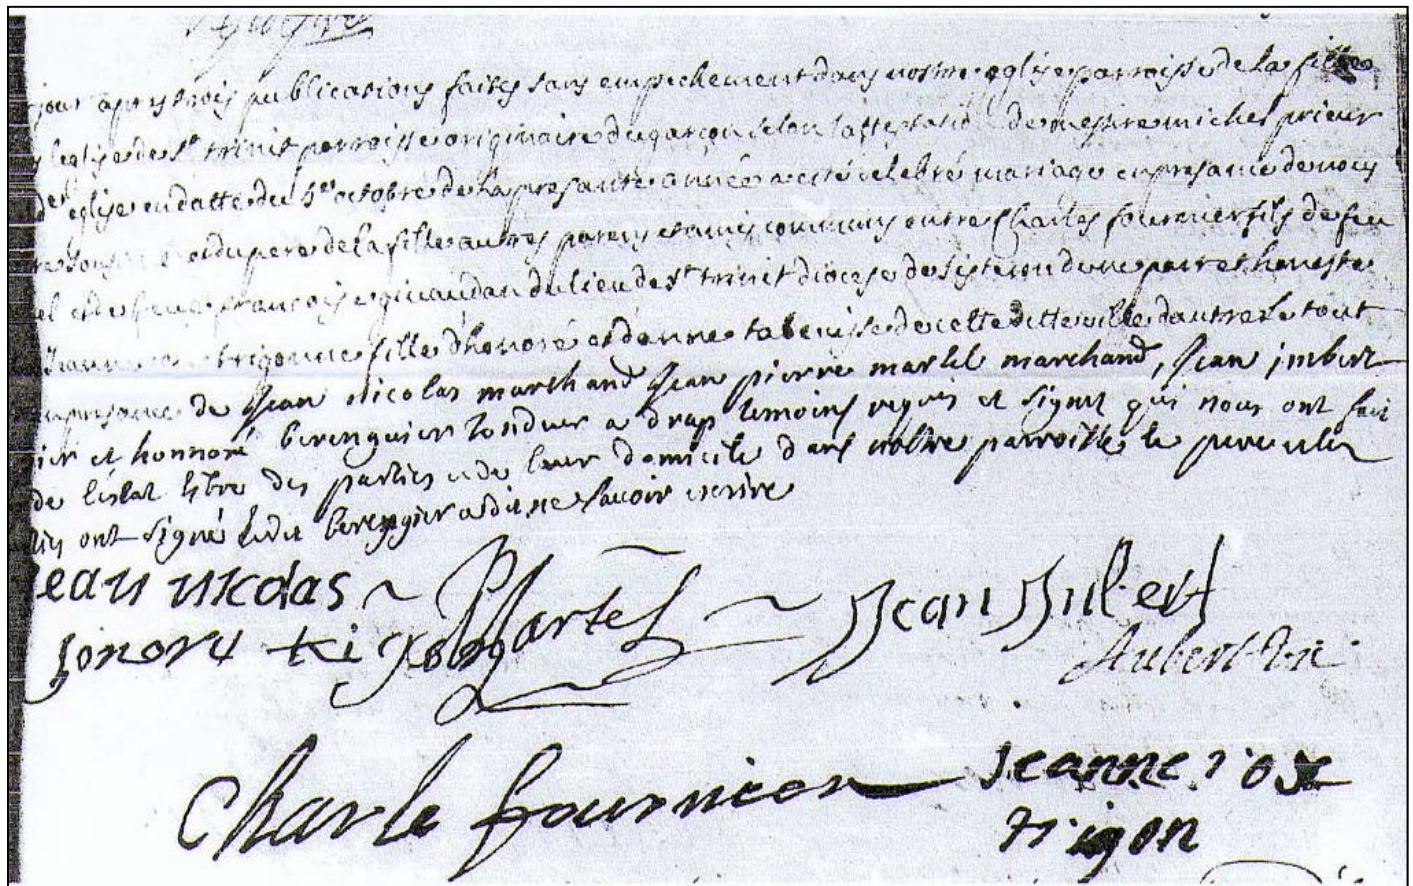 jour apres trois publications faites sans empechement dans nostre eglise parroisse de la fille
l'eglise de st trinit parroisse originaire du garçon selon l'attestation de messire michel prieur
de l'eglise en datte du octobre de la presante année a esté celebré mariage en presance de nous
et du pere de la fille autres parens et amis communs entre Charles fournier fils de feu
et de feue françoise giraudan du lieu de st trinit diocese de sisteron d'une part et honeste
jeanne trigonne fille d'honoré et d'anne tabeuisse de cette ditte ville d'autre le tout
en presance de Jean nicolas marchand Jean pierre martel marchand, Jean jmbert
et honnoré berenguier tondeur a drap temoins requis et signes qui nous ont fait
de l'estat libre des parties et de leur domicile dans nostre parroisse le pere et les
ont signé ledit berengier a dit ne sauoir escrire
jean nicolas
honore trigon
Martel
Jean Jmbert
Aubert
Charle fournier
jeanne rose
trigon